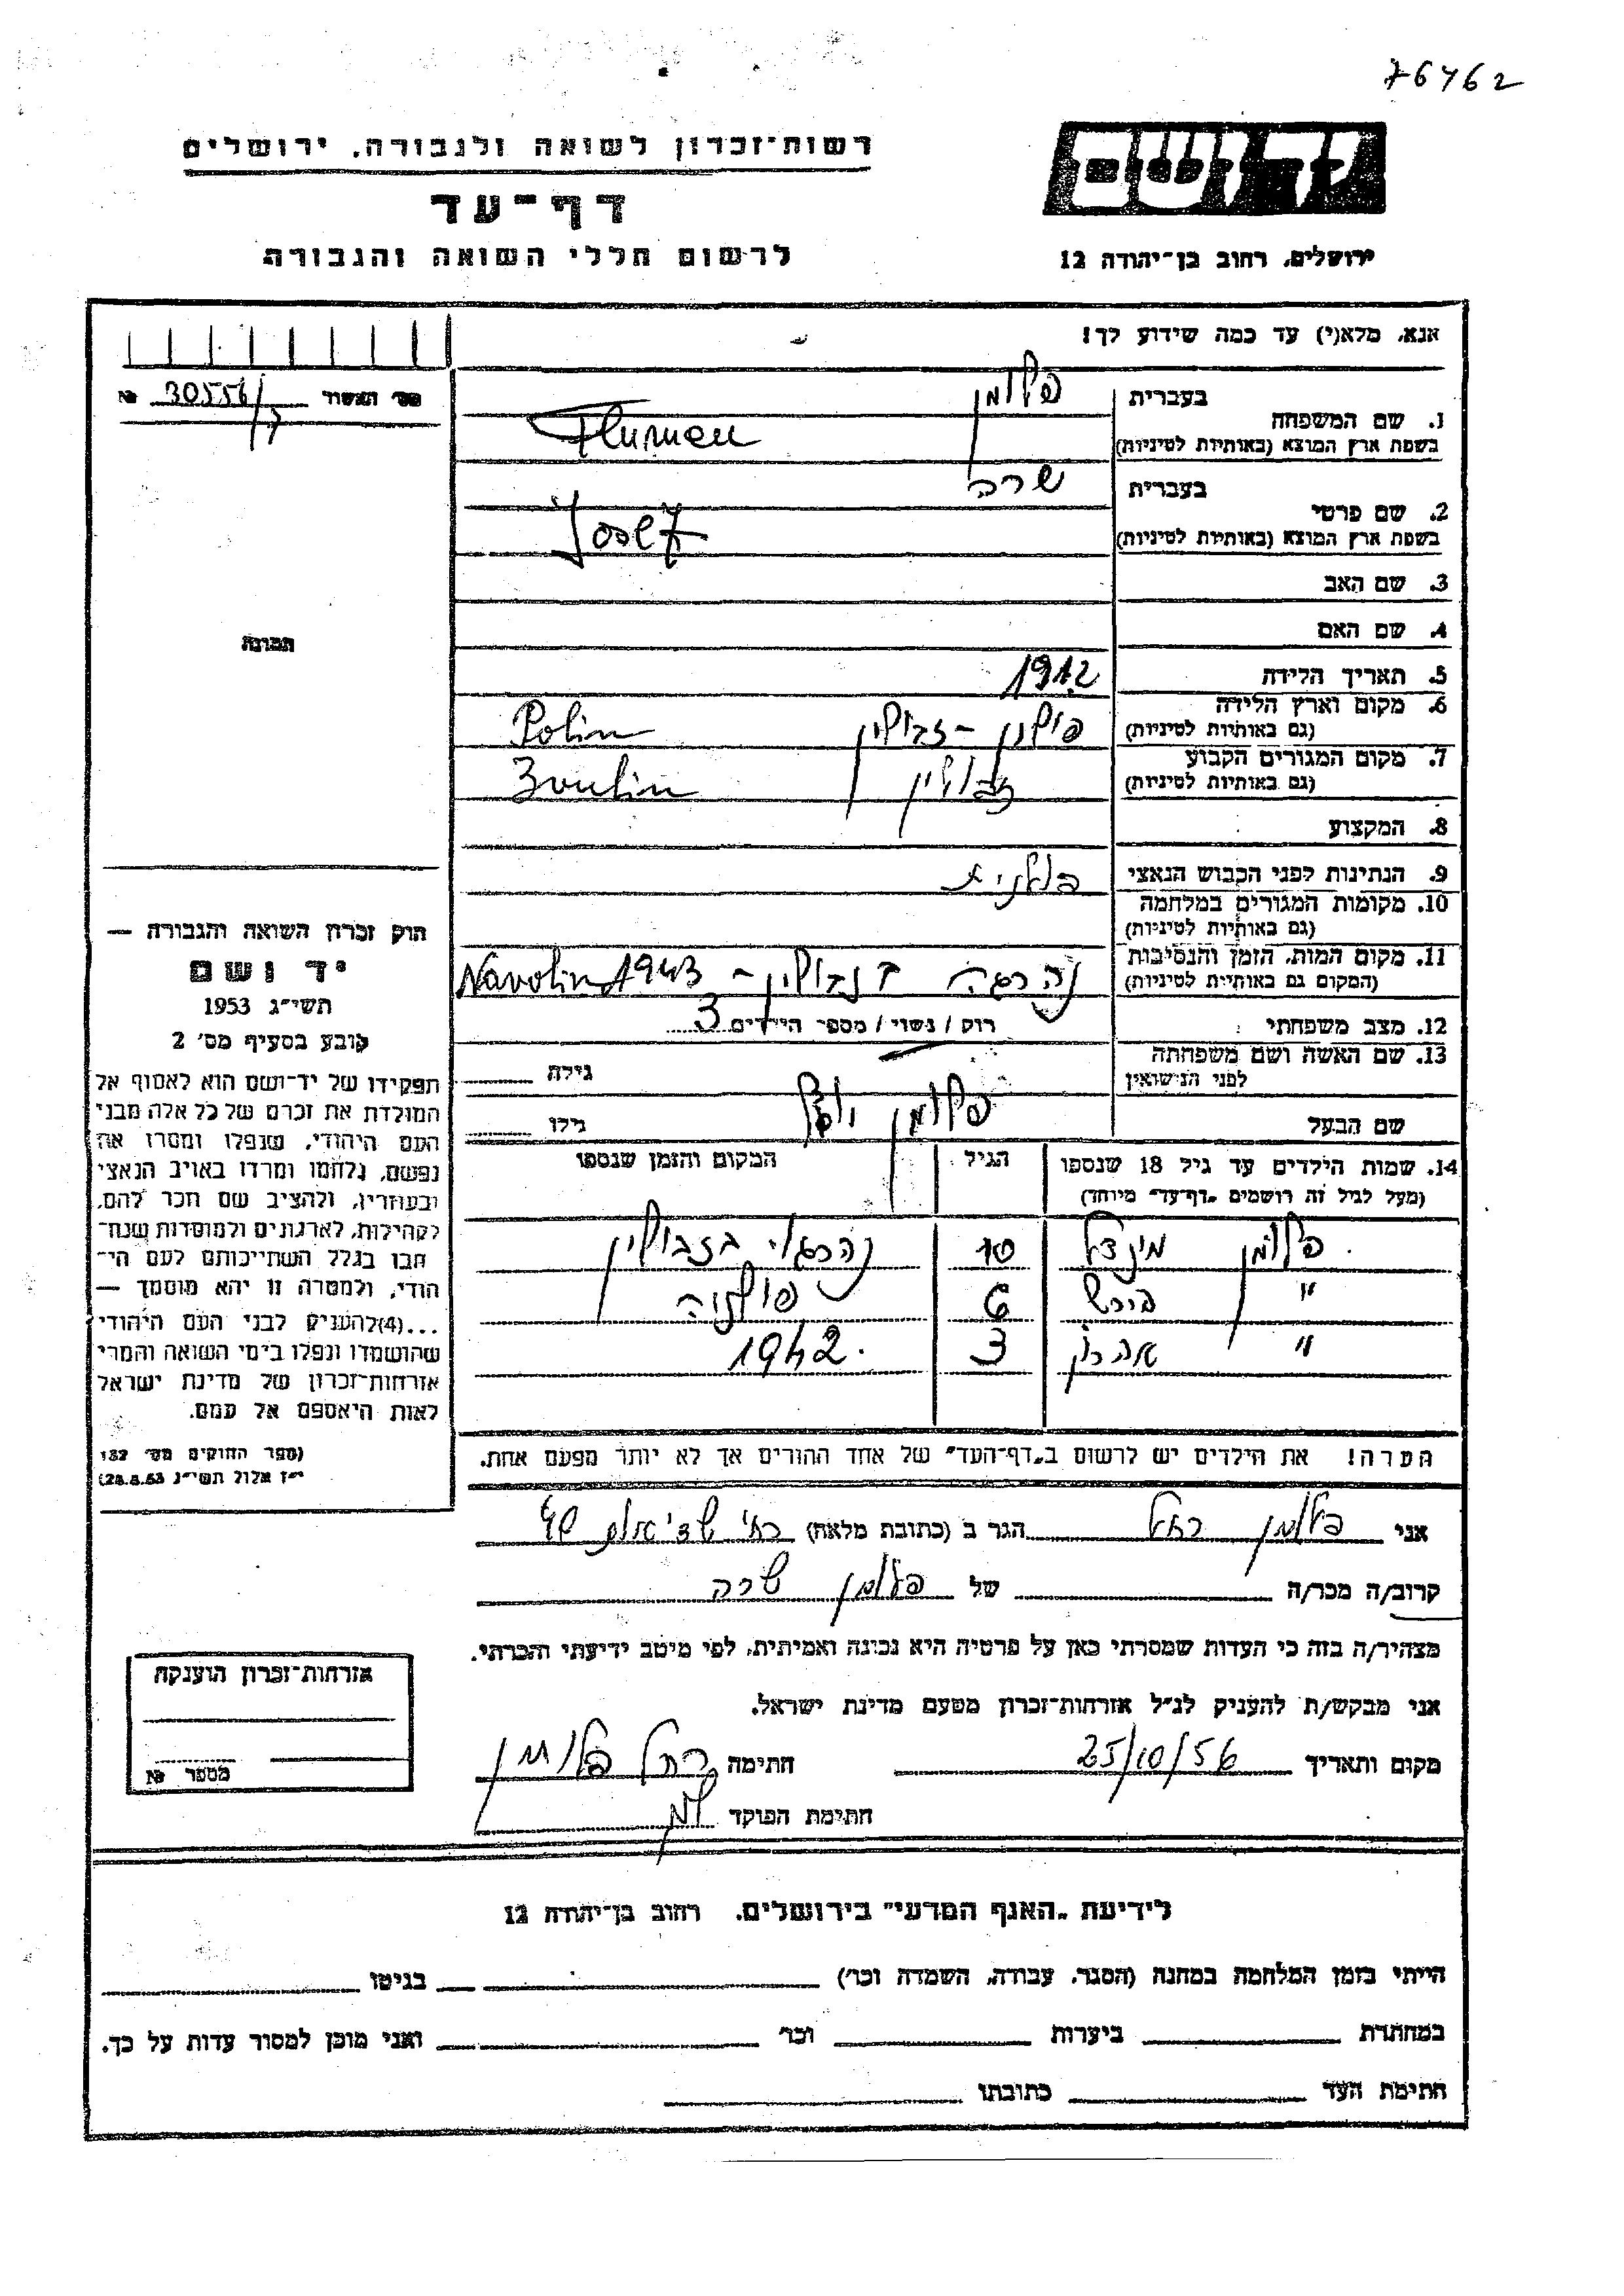 76462
רשות־זכרון לשואה ולגבורה, ירושלים
דף־עד
לרשום חללי השואה והגבורה
ירושלים, רחוב בן־יהודה 12
אנא, מלא(י) עד כמה שידוע לך!
מס׳ האשור № 30556/
1. שם המשפחה בעברית פלומן
בשפת ארץ המוצא (באותיות לטיניות) Flumen
2. שם פרטי בעברית שרה
בשפת ארץ המוצא (באותיות לטיניות) Josef
3. שם האב
4. שם האם
תמונה
5. תאריך הלידה 1912
6. מקום וארץ הלידה (גם באותיות לטיניות) פולין - זבולין Polin
7. מקום המגורים הקבוע (גם באותיות לטיניות) זבולין Zvulin
8. המקצוע
9. הנתינות לפני הכבוש הנאצי פולנית
10. מקומות המגורים במלחמה (גם באותיות לטיניות)
11. מקום המות, הזמן והנסיבות (המקום גם באותיות לטיניות) נהרגה - 1943 Navolin
12. מצב משפחתי רוק / נשוי / מספר הילדים 3
13. שם האשה ושם משפחתה לפני הנישואין גילה
שם הבעל פלומן יוסף גילו
14. שמות הילדים עד גיל 18 שנספו הגיל המקום והזמן שנספו
(מעל לגיל זה רושמים „דף־עד״ מיוחד)
פלומן מינדל 10 נהרגו בזבולין
״ הירש 6 פולניה
״ אהרון 3 1942.
הערה! את הילדים יש לרשום ב„דף־העד״ של אחד ההורים אך לא יותר מפעם אחת.
חוק זכרון השואה והגבורה —
יד ושם
תשי״ג 1953
קובע בסעיף מס׳ 2
תפקידו של יד־ושם הוא לאסוף אל
המולדת את זכרם של כל אלה מבני
העם היהודי, שנפלו ומסרו את
נפשם, נלחמו ומרדו באויב הנאצי
ובעוזריו, ולהציב שם וזכר להם,
לקהילות, לארגונים ולמוסדות שנח־
רבו בגלל השתייכותם לעם הי־
הודי, ולמטרה זו יהא מוסמך —
...(4) להעניק לבני העם היהודי
שהושמדו ונפלו בימי השואה והמרי
אזרחות־זכרון של מדינת ישראל
לאות היאספם אל עמם.
(ספר החוקים מס׳ 132
י״ז אלול תשי״ג 28.8.53)
אני פלומן רחל הגר ב (כתובת מלאה)
קרוב/ה מכר/ה של פלומן שרה
מצהיר/ה בזה כי העדות שמסרתי כאן על פרטיה היא נכונה ואמיתית, לפי מיטב ידיעתי והכרתי.
אני מבקש/ת להעניק לנ״ל אזרחות־זכרון מטעם מדינת ישראל.
מקום ותאריך 25/10/56 חתימה רחל פלומן
חתימת הפוקד
אזרחות־זכרון הוענקה
מספר №
לידיעת „האגף המדעי״ בירושלים, רחוב בן־יהודה 12
הייתי בזמן המלחמה במחנה (הסגר, עבודה, השמדה וכו׳) בגיטו
במחתרת ביערות וכו׳ ואני מוכן למסור עדות על כך.
חתימת העד כתובתו